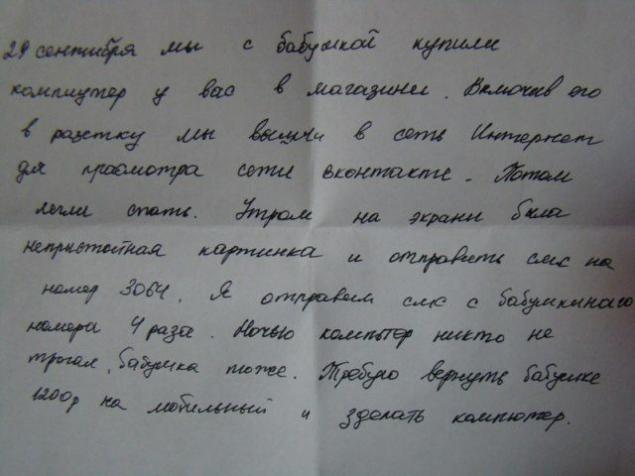 29 сентября мы с бабушкой купили
компиутер у вас в магазини. Включив его
в разетку мы вышли в сеть Интернет
для просмотра сети вконтакте. Потом
легли спать. Утром на экрани была
непристойная картинка и отправить смс на
номер 3064. Я отправил смс с бабушкиного
номера 4 раза. Ночью компьтер никто не
трогал, бабушка тоже. Требую вернуть бабушке
1200р на мобильный и зделать компютер.